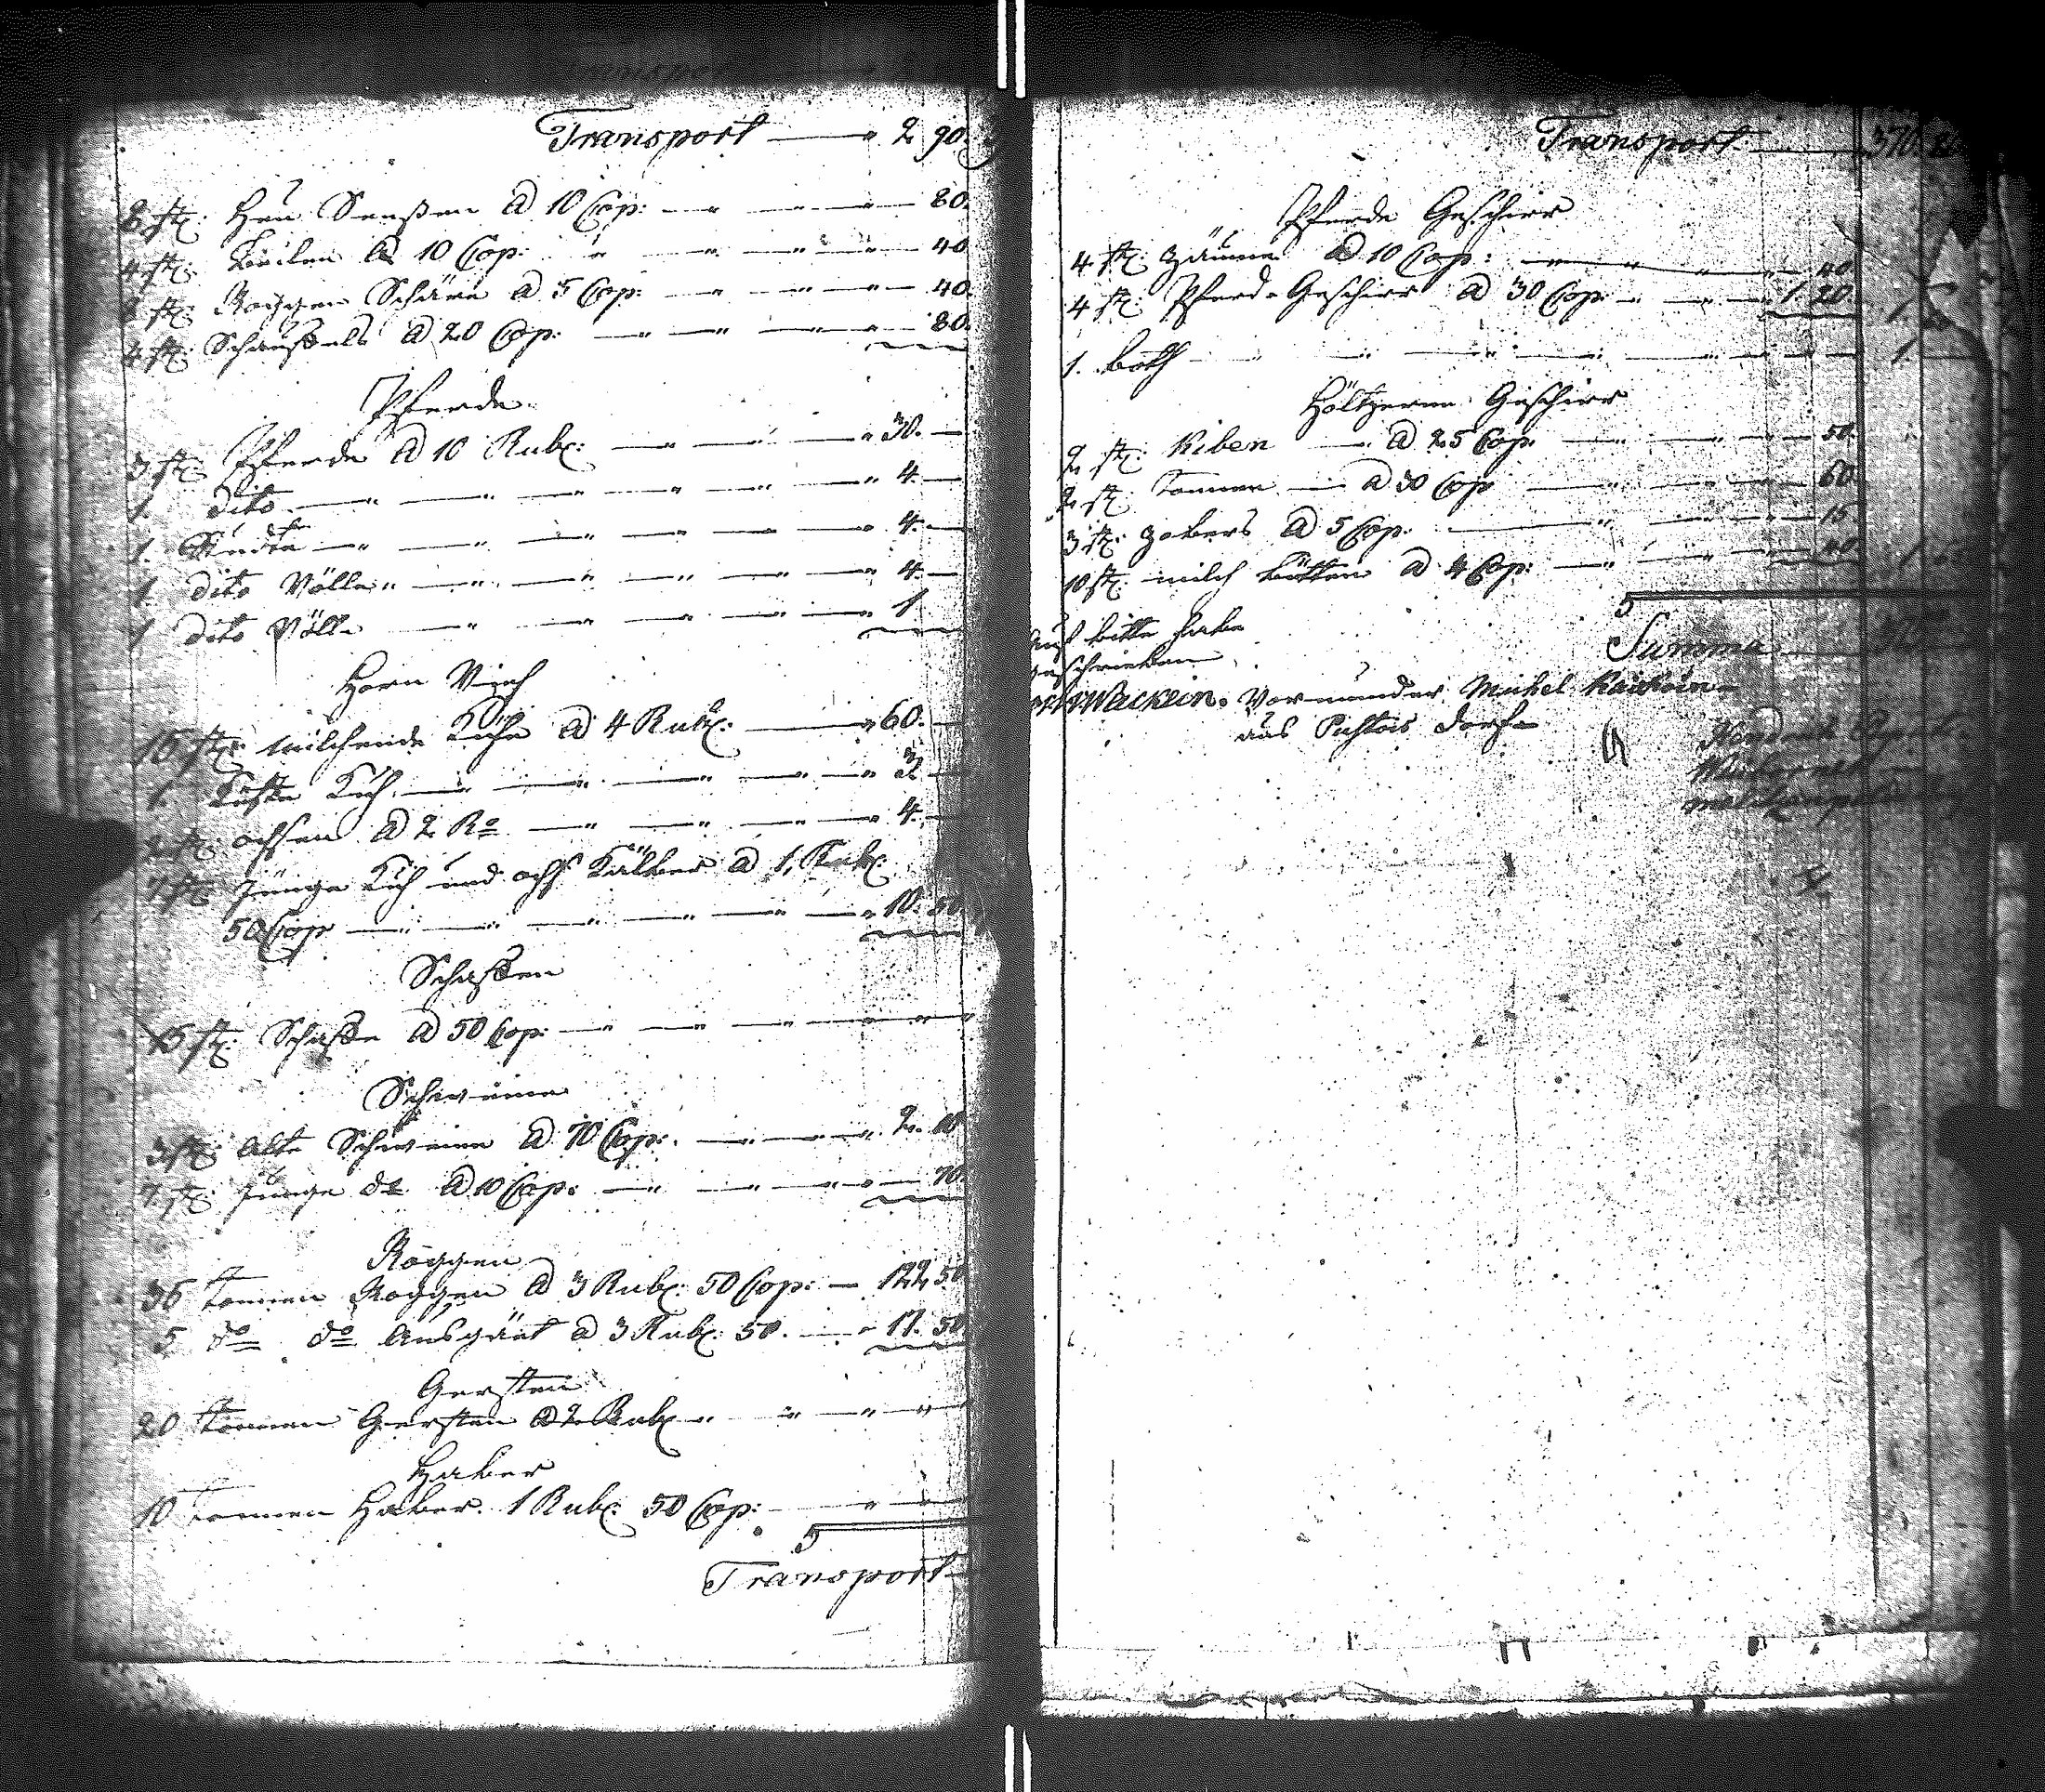 Transport — " 2 90.
8 st: Heu Sensen a 10 Cop: — " — " — 80.
4 st: Beilen a 10 Cop: " — " — " — 40
8 st: Roggen Schäre a 5 Cop: — " — " — 40.
4 st: Schaufels a 20 Cop: — " — " — 80.
Pferde
3 st: Pferde a 10 Rubl: — " — " — " 30. —
1. dito — " — " — " — " — " 4. —
1. Studte — " — " — " — " — " 4. —
1. dito Völle " — " — " — " — " 4. —
1 dito Völle — " — " — " — " 1
Horn Vieh
15 st: milchende Kühe a 4 Rubl: — " 60. —
1. Küh — " — " — " — "
2 st: ochsen a 2 Ro — " — " — " — 4. —
7 st: junge Küh und ochs Kälber a 1, Rubl:
50 Cop — " — " — " — " — " 10. 50
Schaffen
15 st: Schaffe a 50 Cop: — " — " — " — "
Schweine
3 st: alte Schweine a 70 Cop: — " — " 2. 10
7 st: junge do a 10 Cop: — " — " — " — 70.
Roggen
35 tonnen Roggen a 3 Rubl: 50 Cop: — 122 50
5 do do Ausgäut a 3 Rubl: 50. — " 17. 50
Gersten
20 tonnen Gersten a 2 Rubl " " — " — "
Haber
10 tonnen Haber. 1 Rubl: 50 Cop: — " —
Transport
Transport — 376.
Pferde Geschirr
4 st: Zäume a 10 Cop: — " — " — " — 40.
4 st: Pferd-Geschirr a 30 Cop — " — " — 1 20.
1. Both — " — " — " — " — " — 1. —
Höltzerne Geschirr
2 st: Kiben — a 25 Cop. — " — " — 50.
2 st: tonnen — a 30 Cop — " — " — 60.
3 st: Zobers a 5 Cop: — " — " — 15.
10 st: milch bütten a 4 Cop: — " — " — 40.
Auf bitte habe
geschrieben
Summa
Wackein. Vormunder Michel
aus dorf
Hindrich